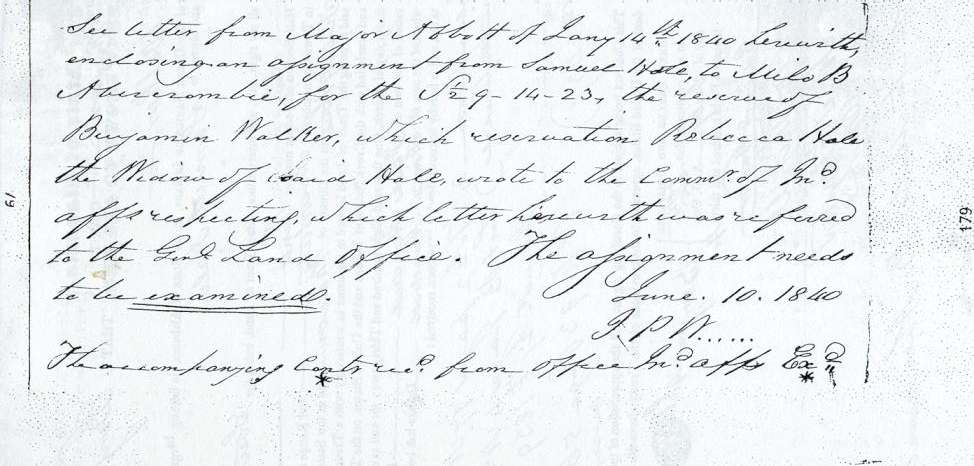 See letter from Major Abbott of Jany 14th 1840 herewith,
enclosing an assignment from Samuel Hale, to Milo B
Abercrombie, for the S 1/2 9-14-23, the reserve of
Benjamin Walker, which reservation Rebecca Hale
the Widow of said Hale, wrote to the Commr. of Ind.
affs respecting, which letter herewith was referred
to the Genl Land Office. The assignment needs
to be examined.
June. 10. 1840
J. P. W......
The accompanying Contr recd. from office Ind. affs Exd.
* *
179